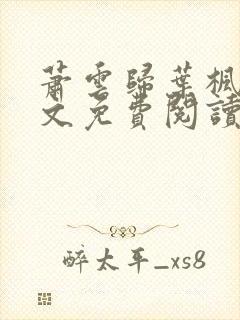 蕭雲歸葉楓
文免費閱讀
醉太平_xs8